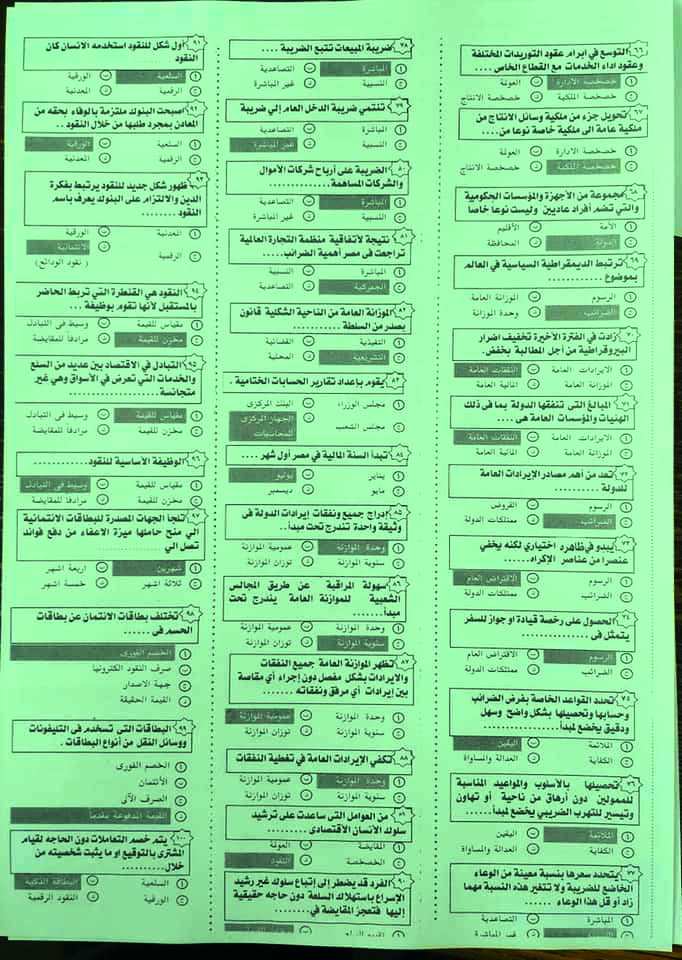 ٦٦ التوسع في ابرام عقود التوريدات المختلفة
وعقود اداء الخدمات مع القطاع الخاص ....
أ خصخصة الادارة ب العولة
ج خصخصة الملكية د خصخصة الانتاج
٦٧ تحويل جزء من ملكية وسائل الانتاج من
ملكية عامة الى ملكية خاصة نوعا من....
أ خصخصة الادارة ب العولة
ج خصخصة الملكية د خصخصة الانتاج
٦٨ مجموعة من الأجهزة والمؤسسات الحكومية
والتي تضم أفراد عاديين وليست نوعا خاصا
أ الأمة ب الأقليم
ج الدولة د المحافظة
٦٩ ترتبط الديمقراطية السياسية في العالم
بموضوع ............
أ الرسوم ب الموزانة العامة
ج الضرائب د وحدة الموزانة
٧٠ زادت في الفترة الأخيرة تخفيف اضرار
البيروقراطية من أجل المطالبة بخفض.
أ الايرادات العامة ب النفقات العامة
ج الموزانة العامة د المالية العامة
٧١ المبالغ التى تنفقها الدولة بما فى ذلك
الهئيات والمؤسسات العامة هى ....
أ الايرادات العامة ب النفقات العامة
ج الموزانة العامة د المالية العامة
٧٢ تعد من أهم مصادر الإيرادات العامة
للدولة ...........
أ الرسوم ب القروض
ج الضرائب د ممتلكات الدولة
٧٣ يبدو في ظاهره اختياري لكنه يخفي
عنصر من عناصر الإكراه.......
أ الرسوم ب الاقتراض العام
ج الضرائب د ممتلكات الدولة
٧٤ الحصول على رخصة قيادة او جواز للسفر
يتمثل فى .......
أ الرسوم ب الاقتراض العام
ج الضرائب د ممتلكات الدولة
٧٥ تحدد القواعد الخاصة بفرض الضرائب
وحسابها وتحصيلها بشكل واضح وسهل
ودقيق يخضع لمبدأ.......
أ الملائمة ب اليقين
ج الكفاية د العدالة والمساواة
٧٦ تحصيلها بالأسلوب والمواعيد المناسبة
للممولين دون أرهاق من ناحية أو تهاون
وتيسير للتهرب الضريبي يخضع لمبدأ......
أ الملائمة ب اليقين
ج الكفاية د العدالة والمساواة
٧٧ يتحدد سعرها بنسبة معينة من الوعاء
الخاضع للضريبة ولا تتغير هذه النسبة مهما
زاد أو قل هذا الوعاء ......
أ المباشرة ب التصاعدية
ج النسبية د غير المباشرة
٧٨ ضريبة المبيعات تتبع الضريبة ....
أ المباشرة ب التصاعدية
ج النسبية د غير المباشرة
٧٩ تنتمي ضريبة الدخل العام إلي ضريبة
أ المباشرة ب التصاعدية
ج النسبية د غير المباشرة
٨٠ الضريبة على أرباح شركات الأموال
والشركات المساهمة..........
أ المباشرة ب التصاعدية
ج النسبية د غير المباشرة
٨١ نتيجة لأتفاقية منظمة التجارة العالمية
تراجعت فى مصر أهمية الضرائب.....
أ المباشرة ب النسبية
ج الجمركية د التصاعدية
٨٢ الموزانة العامة من الناحية الشكلية قانون
يصدر من السلطة ...........
أ التنفيذية ب القضائية
ج التشريعية د المحلية
٨٣ يقوم بإعداد تقارير الحسابات الختامية .
أ مجلس الوزراء ب البنك المركزى
ج مجلس الشعب د الجهاز المركزى
للمحاسبات
٨٤ تبدأ السنة المالية في مصر أول شهر ....
أ يناير ب يوليو
ج مايو د ديسمبر
٨٥ إدراج جميع ونفقات إيرادات الدولة فى
وثيقة واحدة تندرج تحت مبدأ..
أ وحدة الموازنة ب عمومية الموازنة
ج سنوية الموازنة د توزان الموازنة
٨٦ سهولة المراقبة عن طريق المجالس
الشعبية للموازنة العامة يندرج تحت
مبدأ.......
أ وحدة الموازنة ب عمومية الموازنة
ج سنوية الموازنة د توزان الموازنة
٨٧ تظهر الموازنة العامة جميع النفقات
والايرادات بشكل مفصل دون إجراء أي مقاصة
بين إيرادات أي مرفق ونفقاته .......
أ وحدة الموازنة ب عمومية الموازنة
ج سنوية الموازنة د توزان الموازنة
٨٨ تكفي الإيرادات العامة في تغطية النفقات
أ وحدة الموازنة ب عمومية الموازنة
ج سنوية الموازنة د توزان الموازنة
٨٩ من العوامل التى ساعدت على ترشيد
سلوك الأنسان الاقتصادى .........
أ المقايضة ب العولة
ج الخصخصة د النقود
٩٠ الفرد قد يضطر إلى إتباع سلوك غير رشيد
الإسراع باستهلاك السلعة دون حاجه حقيقية
إليها فتعجز المقايضة في........
٩١ أول شكل للنقود استخدمه الانسان كان
النقود
أ السلعية ب الورقية
ج الرقمية د المعدنية
٩٢ اصبحت البنوك ملتزمة بالوفاء بحقه من
المعادن بمجرد طلبها من خلال النقود ..
أ السلعية ب الورقية
ج الرقمية د المعدنية
٩٣ ظهور شكل جديد للنقود يرتبط بفكرة
الدين والالتزام على البنوك يعرف باسم
النقود .......
أ المعدنية ب الورقية
ج الرقمية د الائتمانية
( نقود الودائع)
٩٤ النقود هي القنطرة التي تربط الحاضر
بالمستقبل لأنها تقوم بوظيفة ...
أ مقياس للقيمة ب وسيط فى التبادل
ج مخزن للقيمة د مرادفا للمقايضة
٩٥ التبادل في الاقتصاد بين عديد من السلع
والخدمات التي تعرض في الأسواق وهي غير
متجانسة.........
أ مقياس للقيمة ب وسيط فى التبادل
ج مخزن للقيمة د مرادفا للمقايضة
٩٦ الوظيفة الأساسية للنقود...........
أ مقياس للقيمة ب وسيط فى التبادل
ج مخزن للقيمة د مرادفا للمقايضة
٩٧ تلجأ الجهات المصدرة للبطاقات الائتمانية
الي منح حاملها ميزة الاعفاء من دفع فوائد
تصل الي ............
أ شهرين ب اربعة اشهر
ج ثلاثة اشهر د خمسة اشهر
٩٨ تختلف بطاقات الائتمان عن بطاقات
الحسم فى ......
أ الخصم الفورى
ب صرف النقود الكترونيا
ج جهة الاصدار
د القيمة الحقيقة
٩٩ البطاقات التى تسخدم فى التليفونات
ووسائل النقل من أنواع البطاقات .
أ الخصم الفورى
ب الأئتمان
ج الصرف الآلى
د القيمة المدفوعة مقدما
١٠٠ يتم خصم التعاملات دون الحاجه لقيام
المشترى بالتوقيع او ما يثبت شخصيته من
خلال..........
أ السلعية ب البطاقة الذكية
ج الورقية د النقود الرقمية